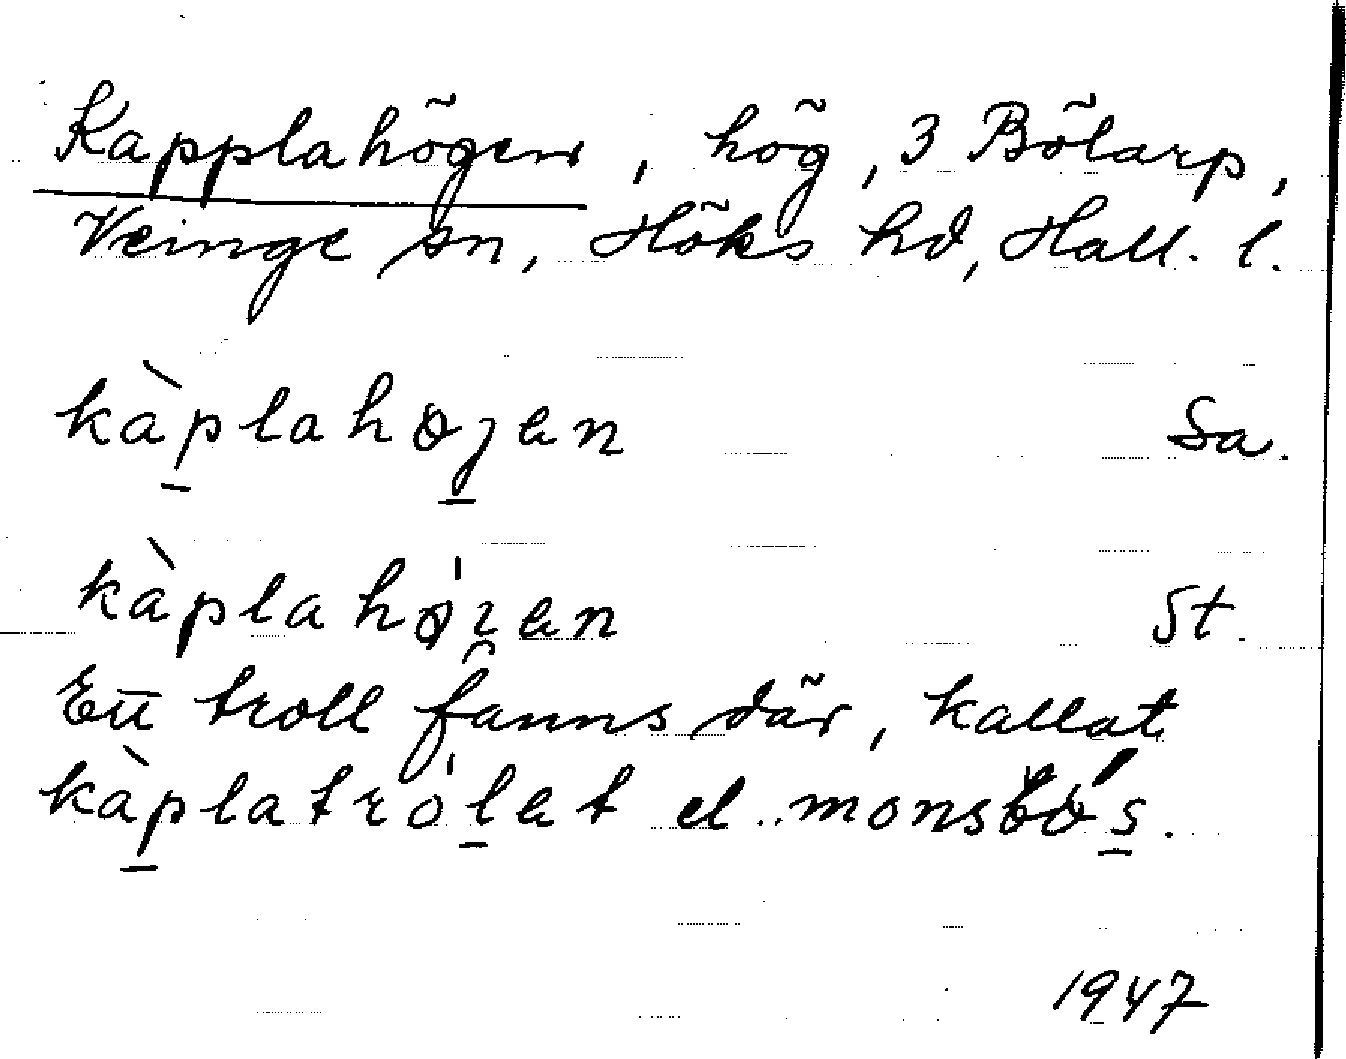 Kapplahögen, hög, 3 Bölarp,
Veinge sn, Höks hd, Hall. l.
kàplahøjen Sa.
kàplahøi̯en St.
Ett troll fanns där, kallat
kàplatrolet el.
1947